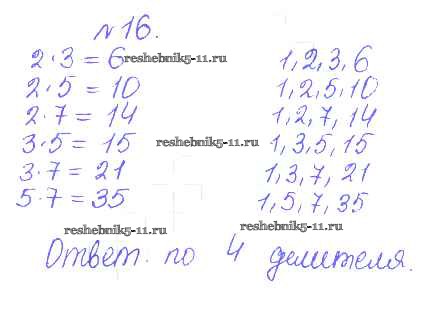 №16.
2·3 = 6 reshebnik5-11.ru 1, 2, 3, 6
2·5 = 10 1, 2, 5, 10
2·7 = 14 1, 2, 7, 14
3·5 = 15 reshebnik5-11.ru 1, 3, 5, 15
3·7 = 21 1, 3, 7, 21
5·7 = 35 1, 5, 7, 35
reshebnik5-11.ru reshebnik5-11.ru
Ответ. по 4 делителя.